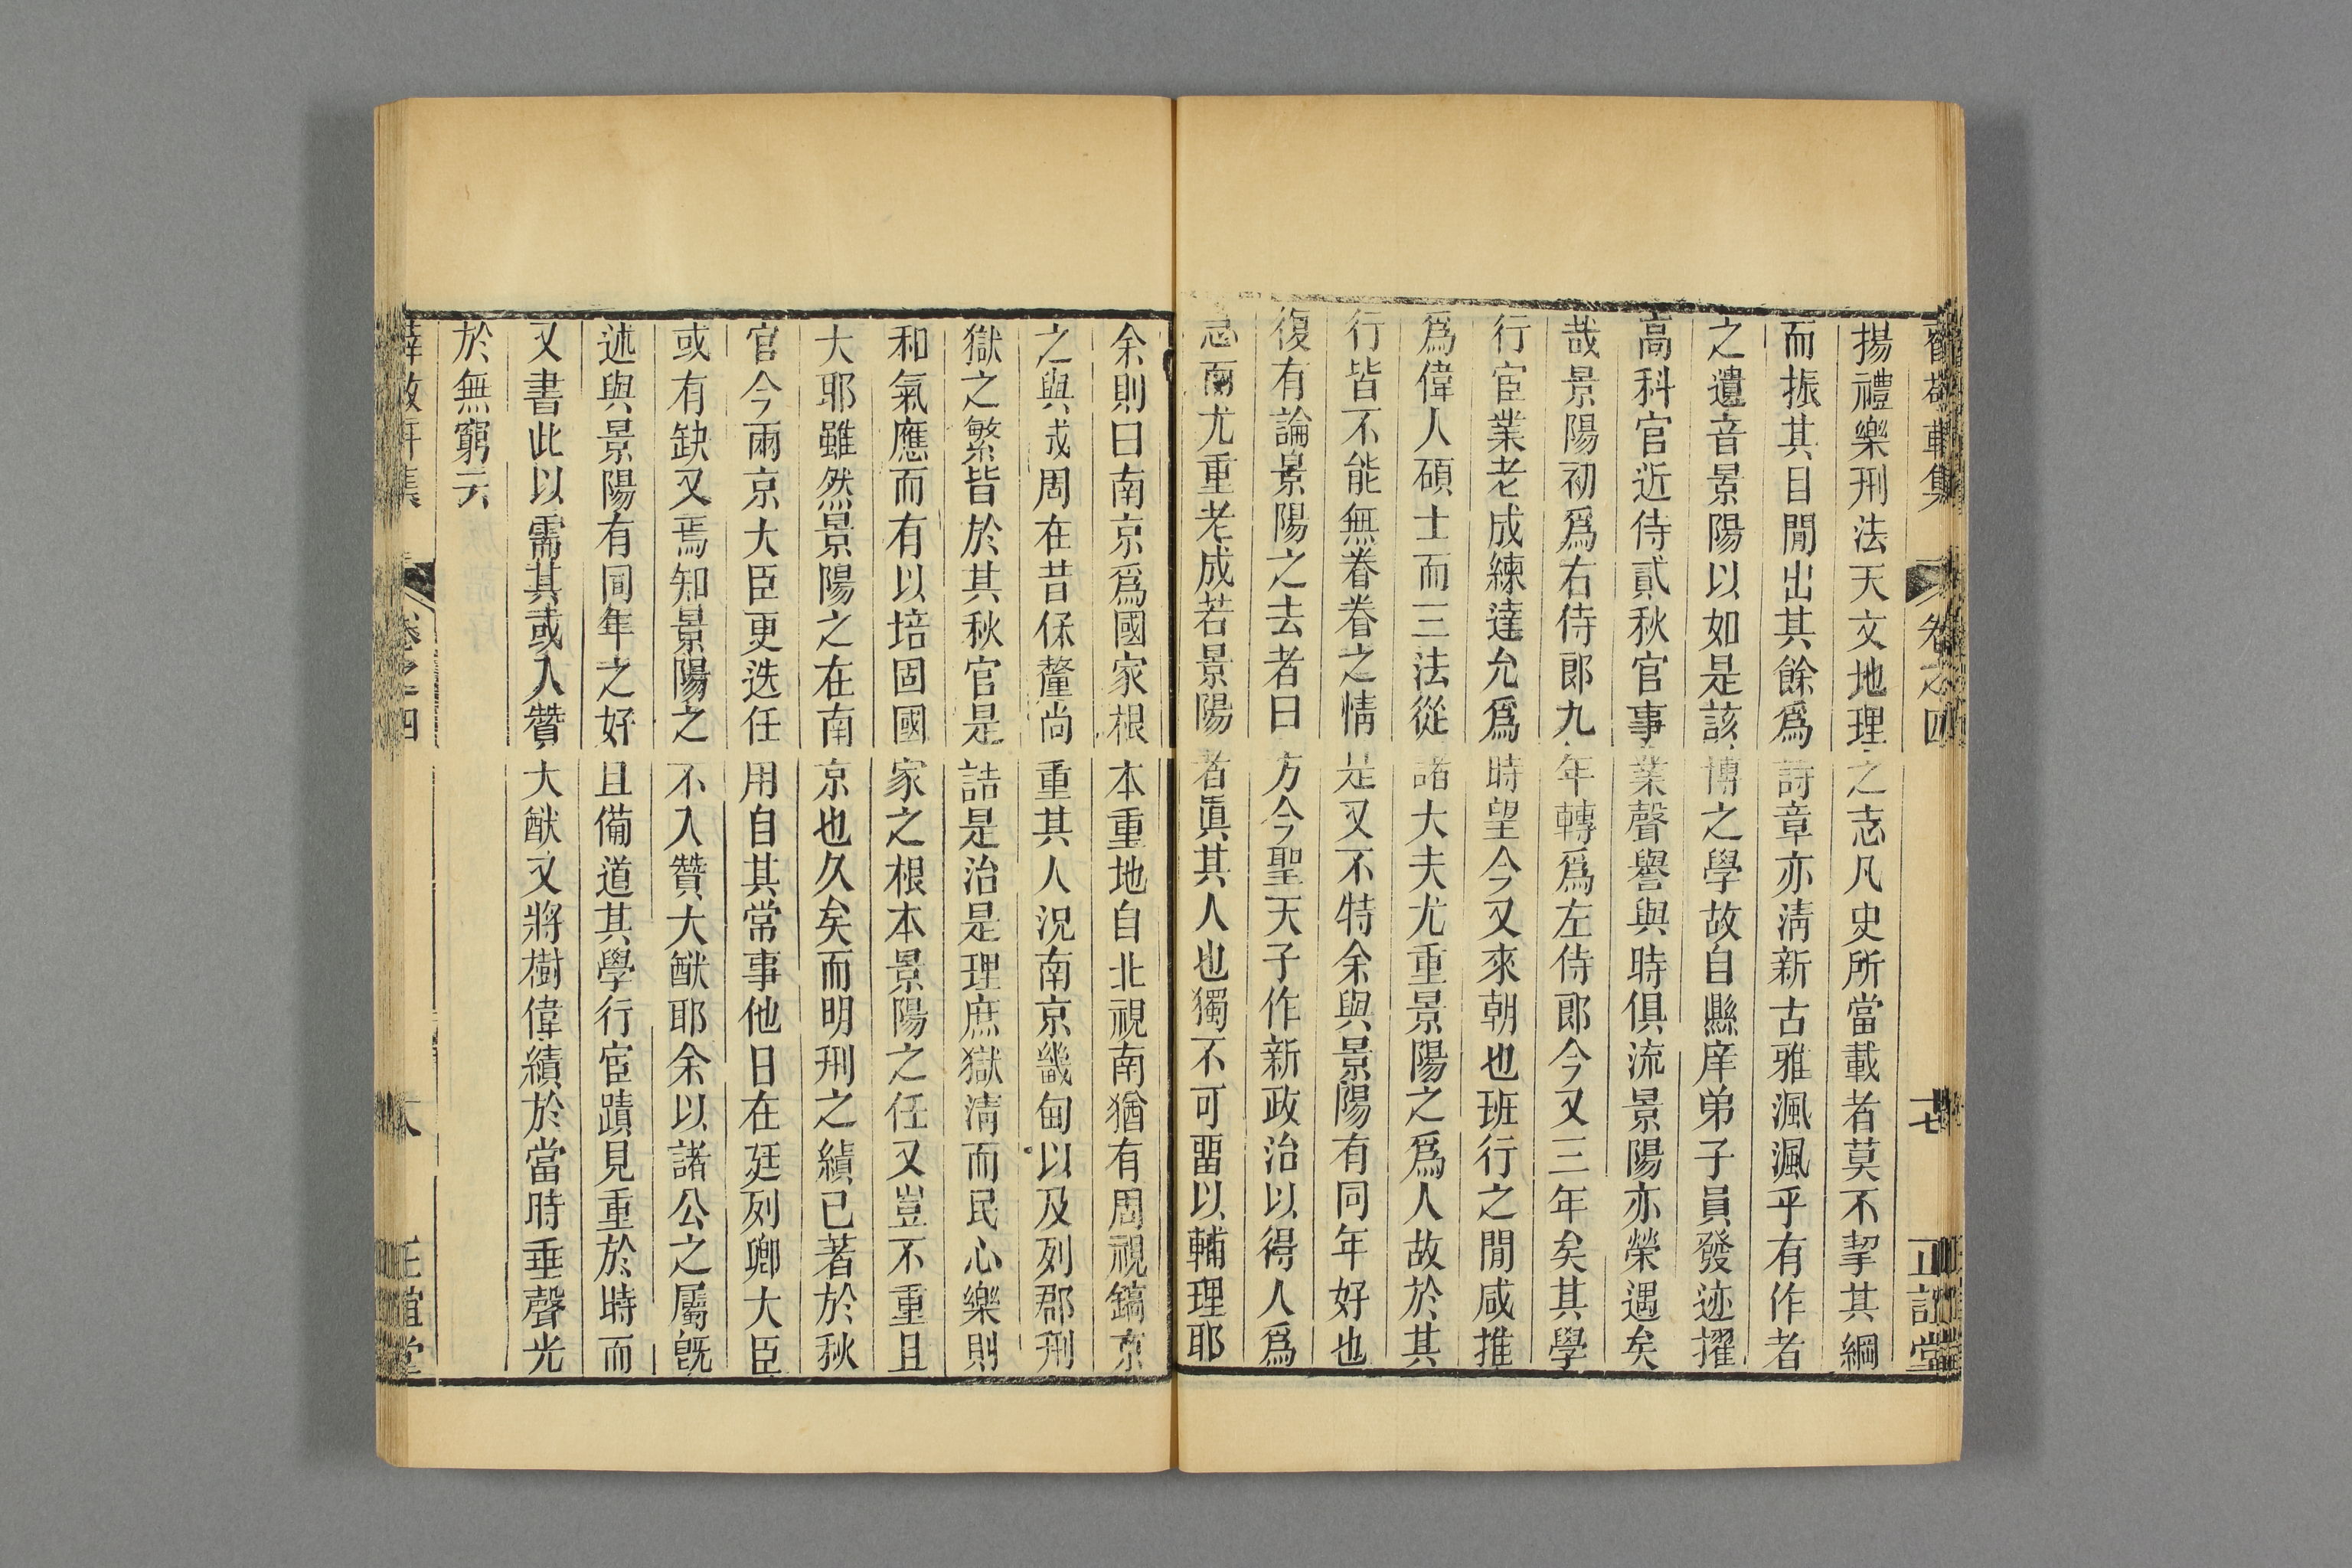 揚禮樂刑法天文地理之志凡史所當載者莫不挈其綱
而振其目閒出其餘爲詩章亦淸新古雅渢渢乎有作者
之遺音景陽以如是該博之學故自縣庠弟子員發迹擢
高科官近侍貳秋官事業聲譽與時俱流景陽亦榮遇矣
哉景陽初爲右侍郞九年轉爲左侍郞今又三年矣其學
行宦業老成練達允爲時望今又來朝也班行之閒咸推
爲偉人碩士而三法從諸大夫尤重景陽之爲人故於其
行皆不能無眷眷之情是又不特余與景陽有同年好也
復有論景陽之去者曰方今聖天子作新政治以得人爲
急而尤重老成若景陽者眞其人也獨不可畱以輔理耶
余則曰南京爲國家根本重地自北視南猶有周視鎬京
之與戎周在昔保釐尚重其人況南京畿甸以及列郡刑
獄之繁皆於其秋官是詰是治是理庶獄淸而民心樂則
和氣應而有以培固國家之根本景陽之任又豈不重且
大耶雖然景陽之在南京也久矣而明刑之績已著於秋
官今兩京大臣更迭任用自其常事他日在廷列卿大臣
或有缺又焉知景陽之不入贊大猷耶余以諸公之屬旣
述與景陽有同年之好且備道其學行宦蹟見重於時而
又書此以需其或入贊大猷又將樹偉績於當時垂聲光
於無窮云